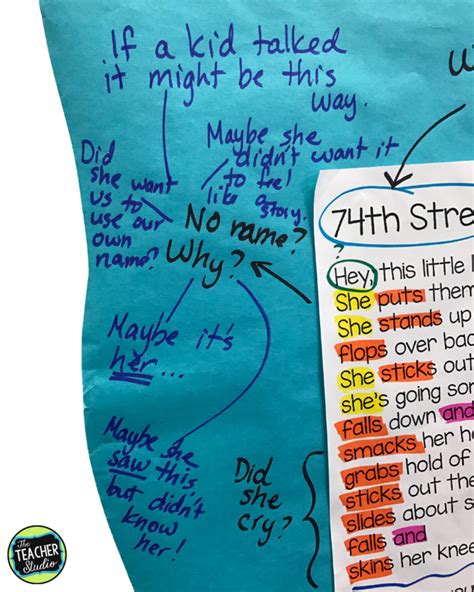 If a kid talked
it might be this
way.
Maybe she
didn't want it
to feel
like a
story.
Did
she want
us to
use our
own
name?
No name?
Why?
Maybe it's
her...
Maybe she
saw this
but didn't
know
her!
Did
she
cry?
74th Stre
?
Hey, this little
She puts them
She stands up
flops over bac
She sticks out
she's going so
falls down and
smacks her h
grabs hold of
sticks out the
slides about s
falls and
skins her knee
The
TEACHER
Studio